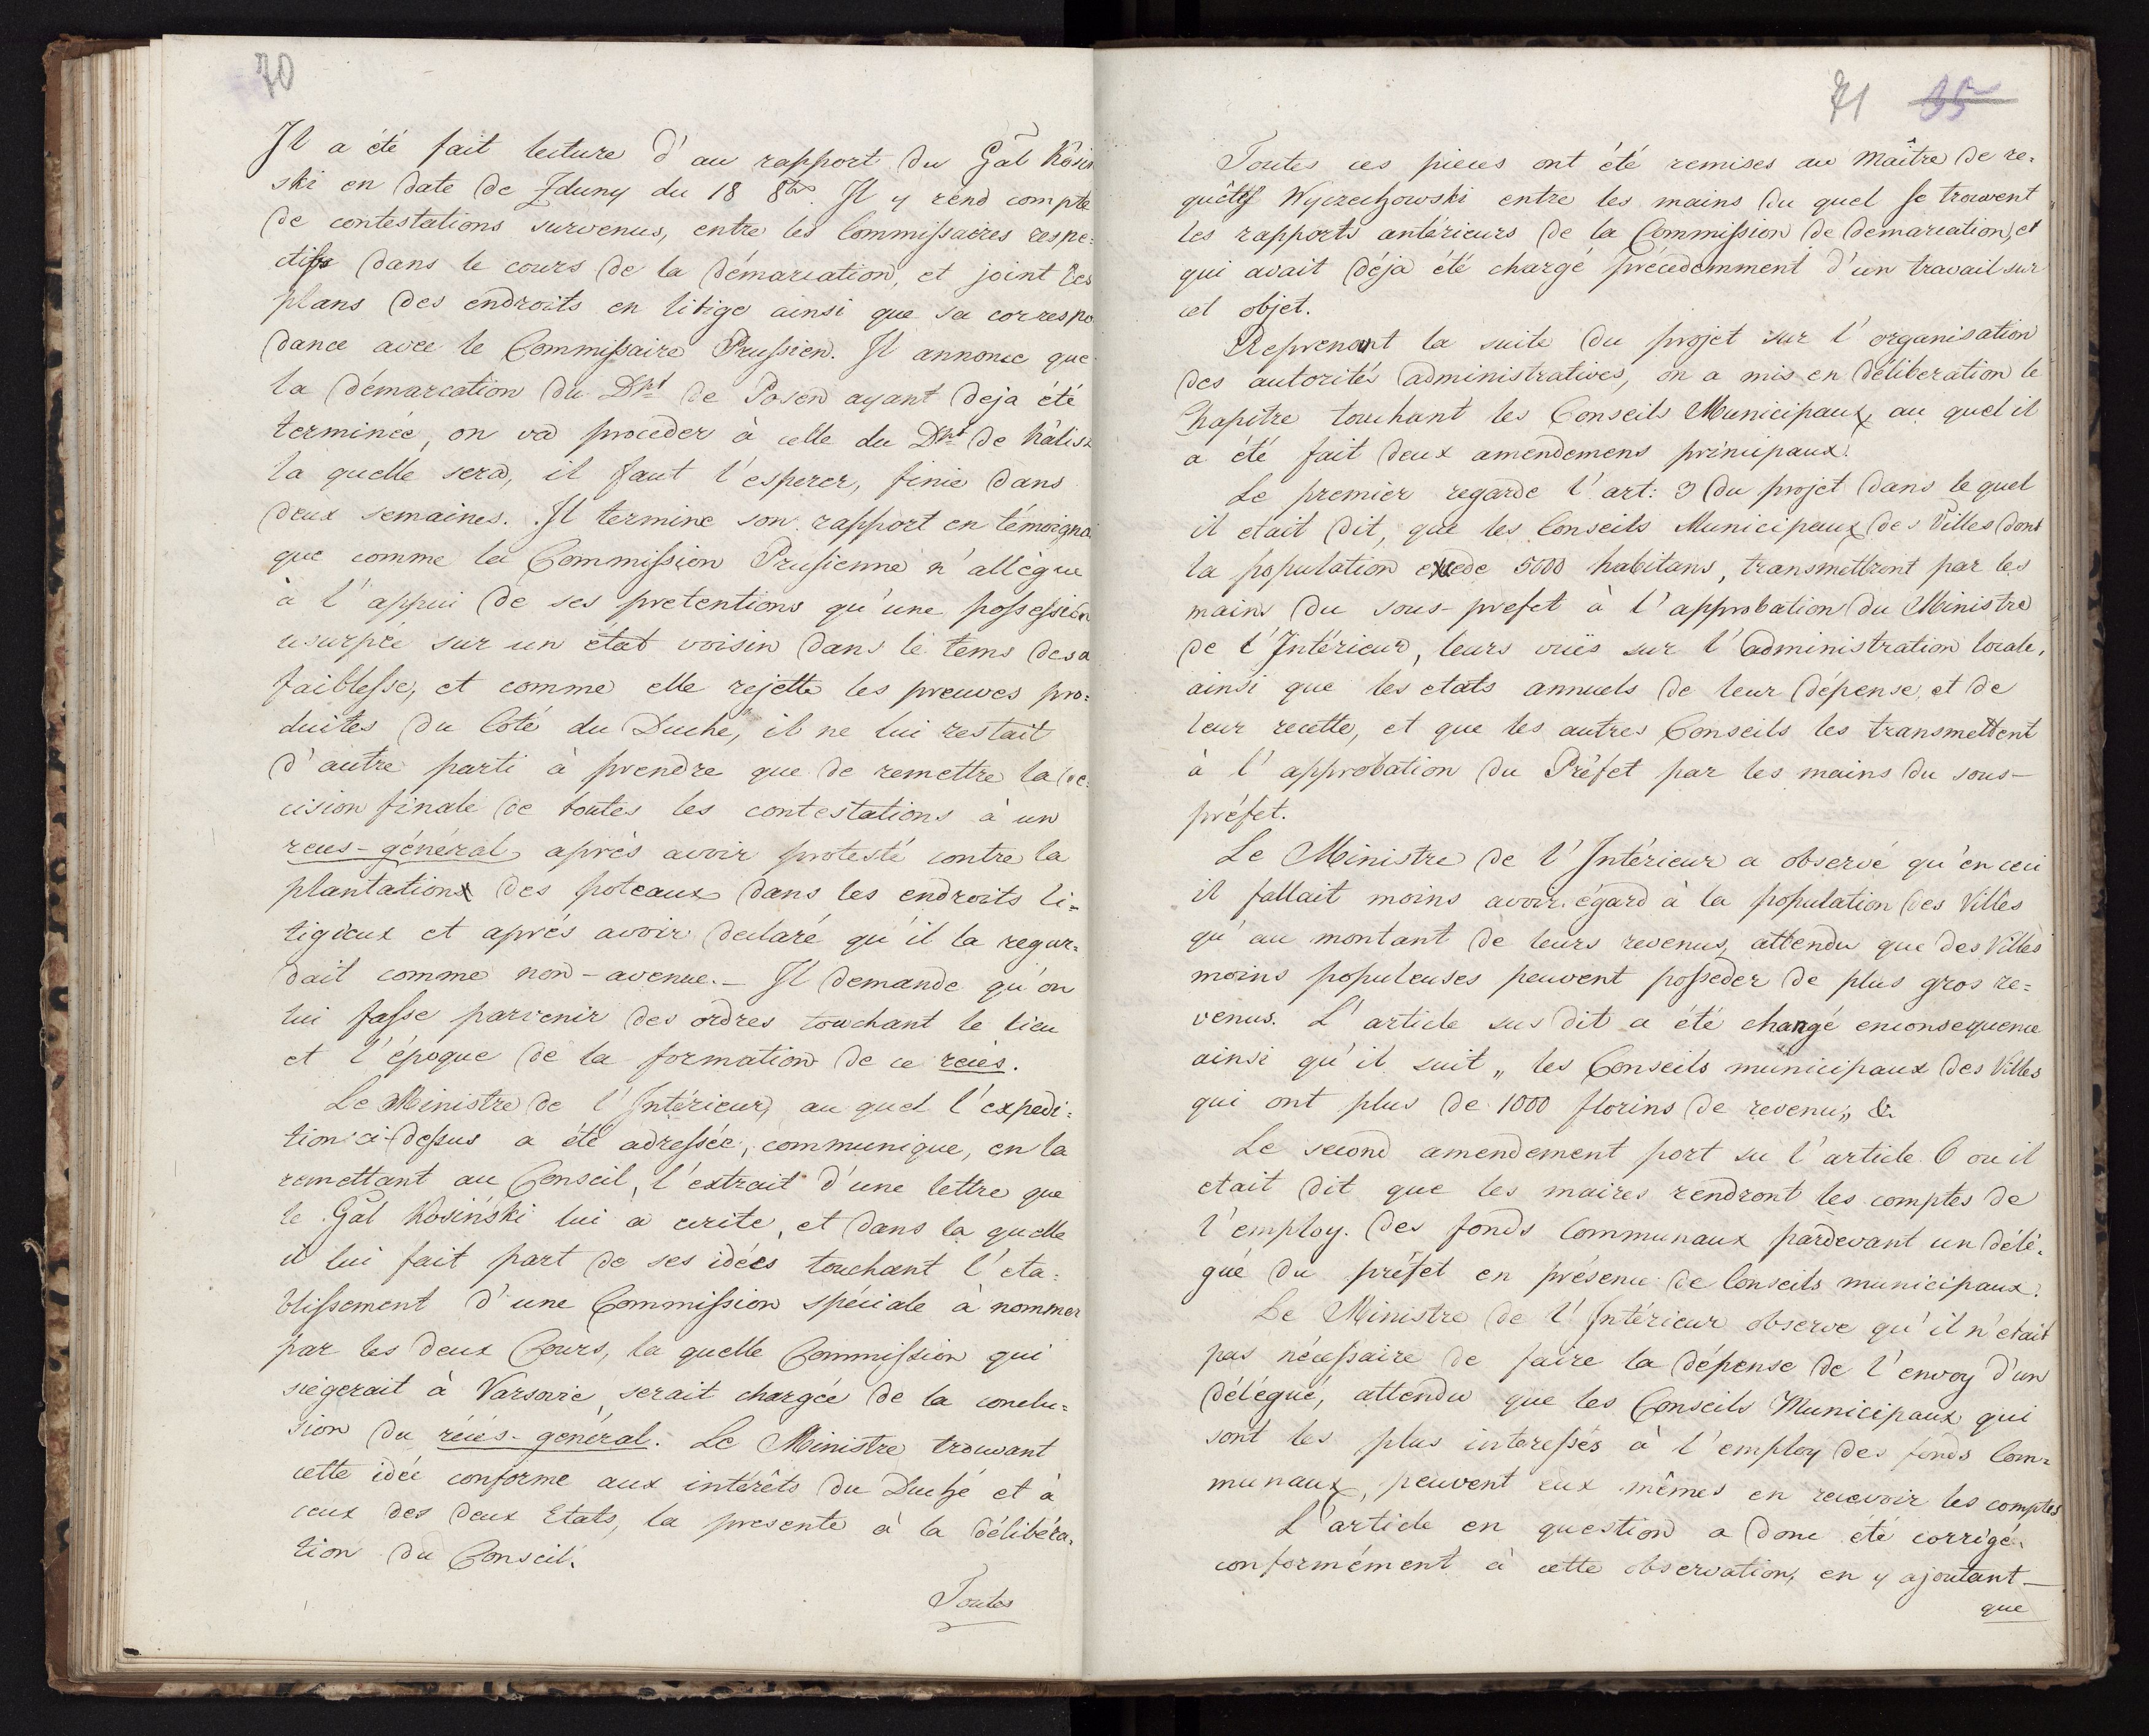 70
Il a été fait lecture d'au rapport du Gãl Kosin
ski en date de Zduny du 18 8bre. Il y rend compte
de contestations survenus, entre les Commissaires respe=
ctifs dans le cours de la démarcation, et joint les
plans des endroits en litige ainsi que sa correspo
dance avec le Commissaire Prussien. Il annonce que
la démarcation du Dht de Posen ayant deja été
terminée, on va proceder à celle du Dht de Kalisz
la quelle sera, il faut l'esperer, finie dans
deux semaines. Il termine son rapport en témoigna
que comme la Commission Prusienne n'allègue
à l'appui de ses pretentions qu'une possession
usurpée sur un état voisin dans le tems de sa
faiblesse, et comme elle rejette les preuves pro=
duites du Coté du Duché, il ne lui restait
d'autre parti à prendre que de remettre la de=
cision finale de toutes les contestations à un
recés-général, aprés avoir protesté contre la
plantation des poteaux dans les endroits li=
tigieux et aprés avoir declaré qu'il la regar=
dait comme non-avenue. — Il demande qu'on
lui fasse parvenir des ordres touchant le lieu
et l'époque de la formation de ce recés.
Le Ministre de l'Intérieur, au quel l'expedi=
tion ci-dessus a été adressée, communique, en la
remettant au Conseil, l'extrait d'une lettre que
le Gãl Kosiński lui a ecrite, et dans la quelle
il lui fait part de ses idées touchant l'eta=
blissement d'une Commission spéciale à nommer
par les deux Cours, la quelle Commission qui
siégerait à Varsovie, serait chargée de la conclu=
sion du récés-général. Le Ministre trouvant
cette idée conforme aux intérêts du Duché et à
ceux des deux Etats, la presente à la délibéra=
tion du Conseil.
Toutes
71 35
Toutes ces pieces ont été remises au Maître de re=
quêtes Wyczechowski entre les mains du quel se trouvent
les rapports antérieurs de la Commission de demarcation, et
qui avait déja été chargé précédemment d'un travail sur
cet objet.
Reprenant la suite du projet sur l'organisation
des autorités administratives, on a mis en déliberation le
Chapitre touchant les Conseils Municipaux, au quel il
a été fait deux amendemens principaux.
Le premier regarde l'art: 3 du projet dans le quel
il etait dit, que les Conseils Municipaux des Villes dont
la population excede 5000 habitans, transmettront par les
mains du sous-prefet à l'approbation du Ministre
de l'Intérieur, leurs vuës sur l'administration locale,
ainsi que les etats annuels de leur dépense, et de
leur recette, et que les autres Conseils les transmettent
à l'approbation du Préfet par les mains du sous-
préfet.
Le Ministre de l'Intérieur a observé qu'en ceci
il fallait moins avoir égard à la population des Villes
qu'au montant de leurs revenus, attendu que des Villes
moins populeuses peuvent posseder de plus gros re=
venus. L'article sus dit a été changé enconsequence
ainsi qu'il suit „ les Conseils municipaux des Villes
qui ont plus de 1000 florins de revenu„ &.
Le second amendement port su l'article 6 ou il
etait dit que les maires rendront les comptes de
l'employ. des fonds Communaux pardevant un délé=
gué du préfet en présence de Conseils municipaux.
Le Ministre de l'Intérieur observe qu'il n'etait
pas nécessaire de faire la dépense de l'envoy d'un
délégué, attendu que les Conseils Municipaux qui
sont les plus interessés à l'employ des fonds Com=
munaux, peuvent eux mêmes en recevoir les comptes
L'article en question a donc été corrigé
conformément à cette observation, en y ajoutant —
que